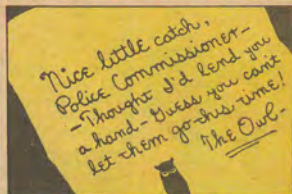 Nice little catch,
Police Commissioner—
—Thought I'd lend you
a hand—Guess you can't
let them go this time!
The Owl—